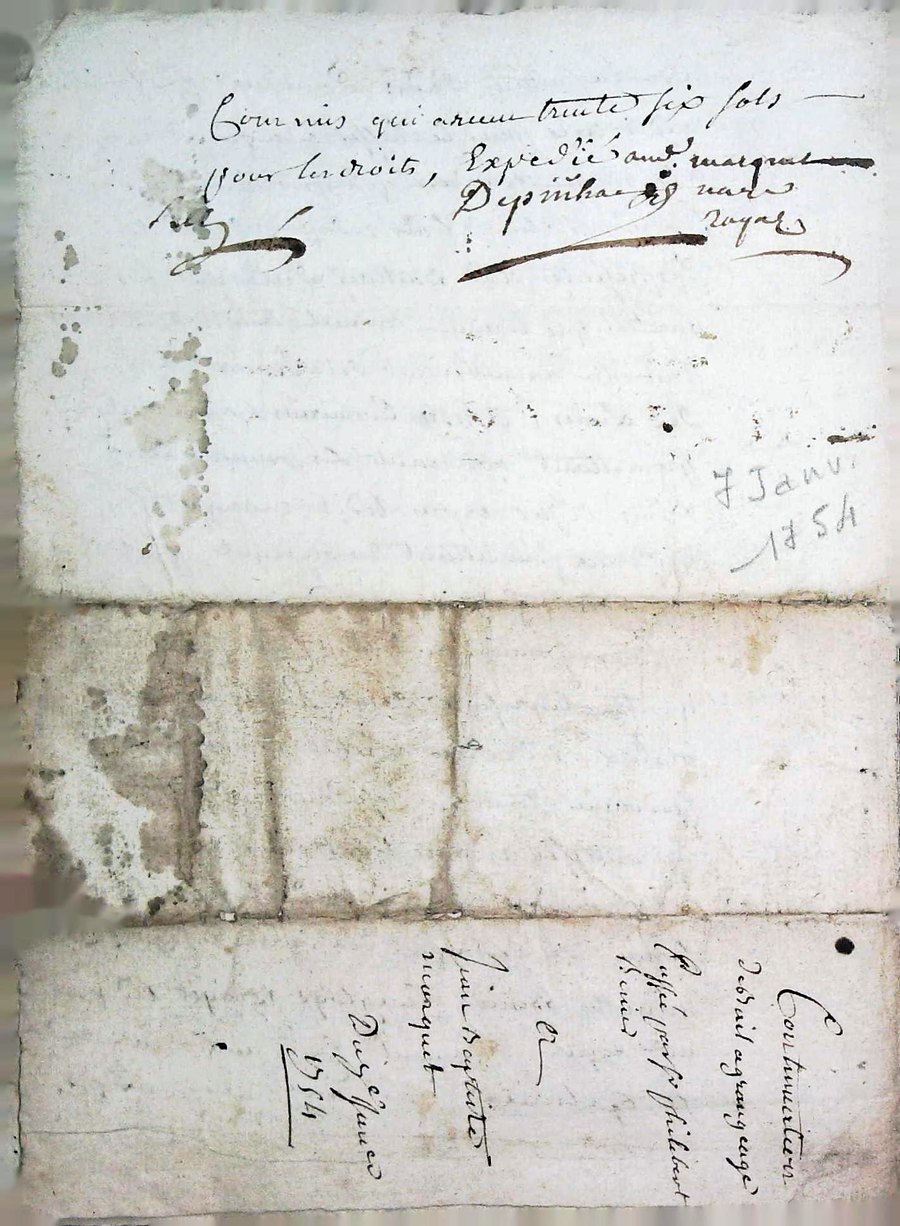 Commis qui a receu trente six sols
pour les droits, Expedié aud. marquet
Depinhac nore
royal
7 Janv.
1754
Continuation
de bail a grangeage
Passé par sr philibert
Benier
A
Jean Baptiste
marquet
Du 7e Janvier
1754